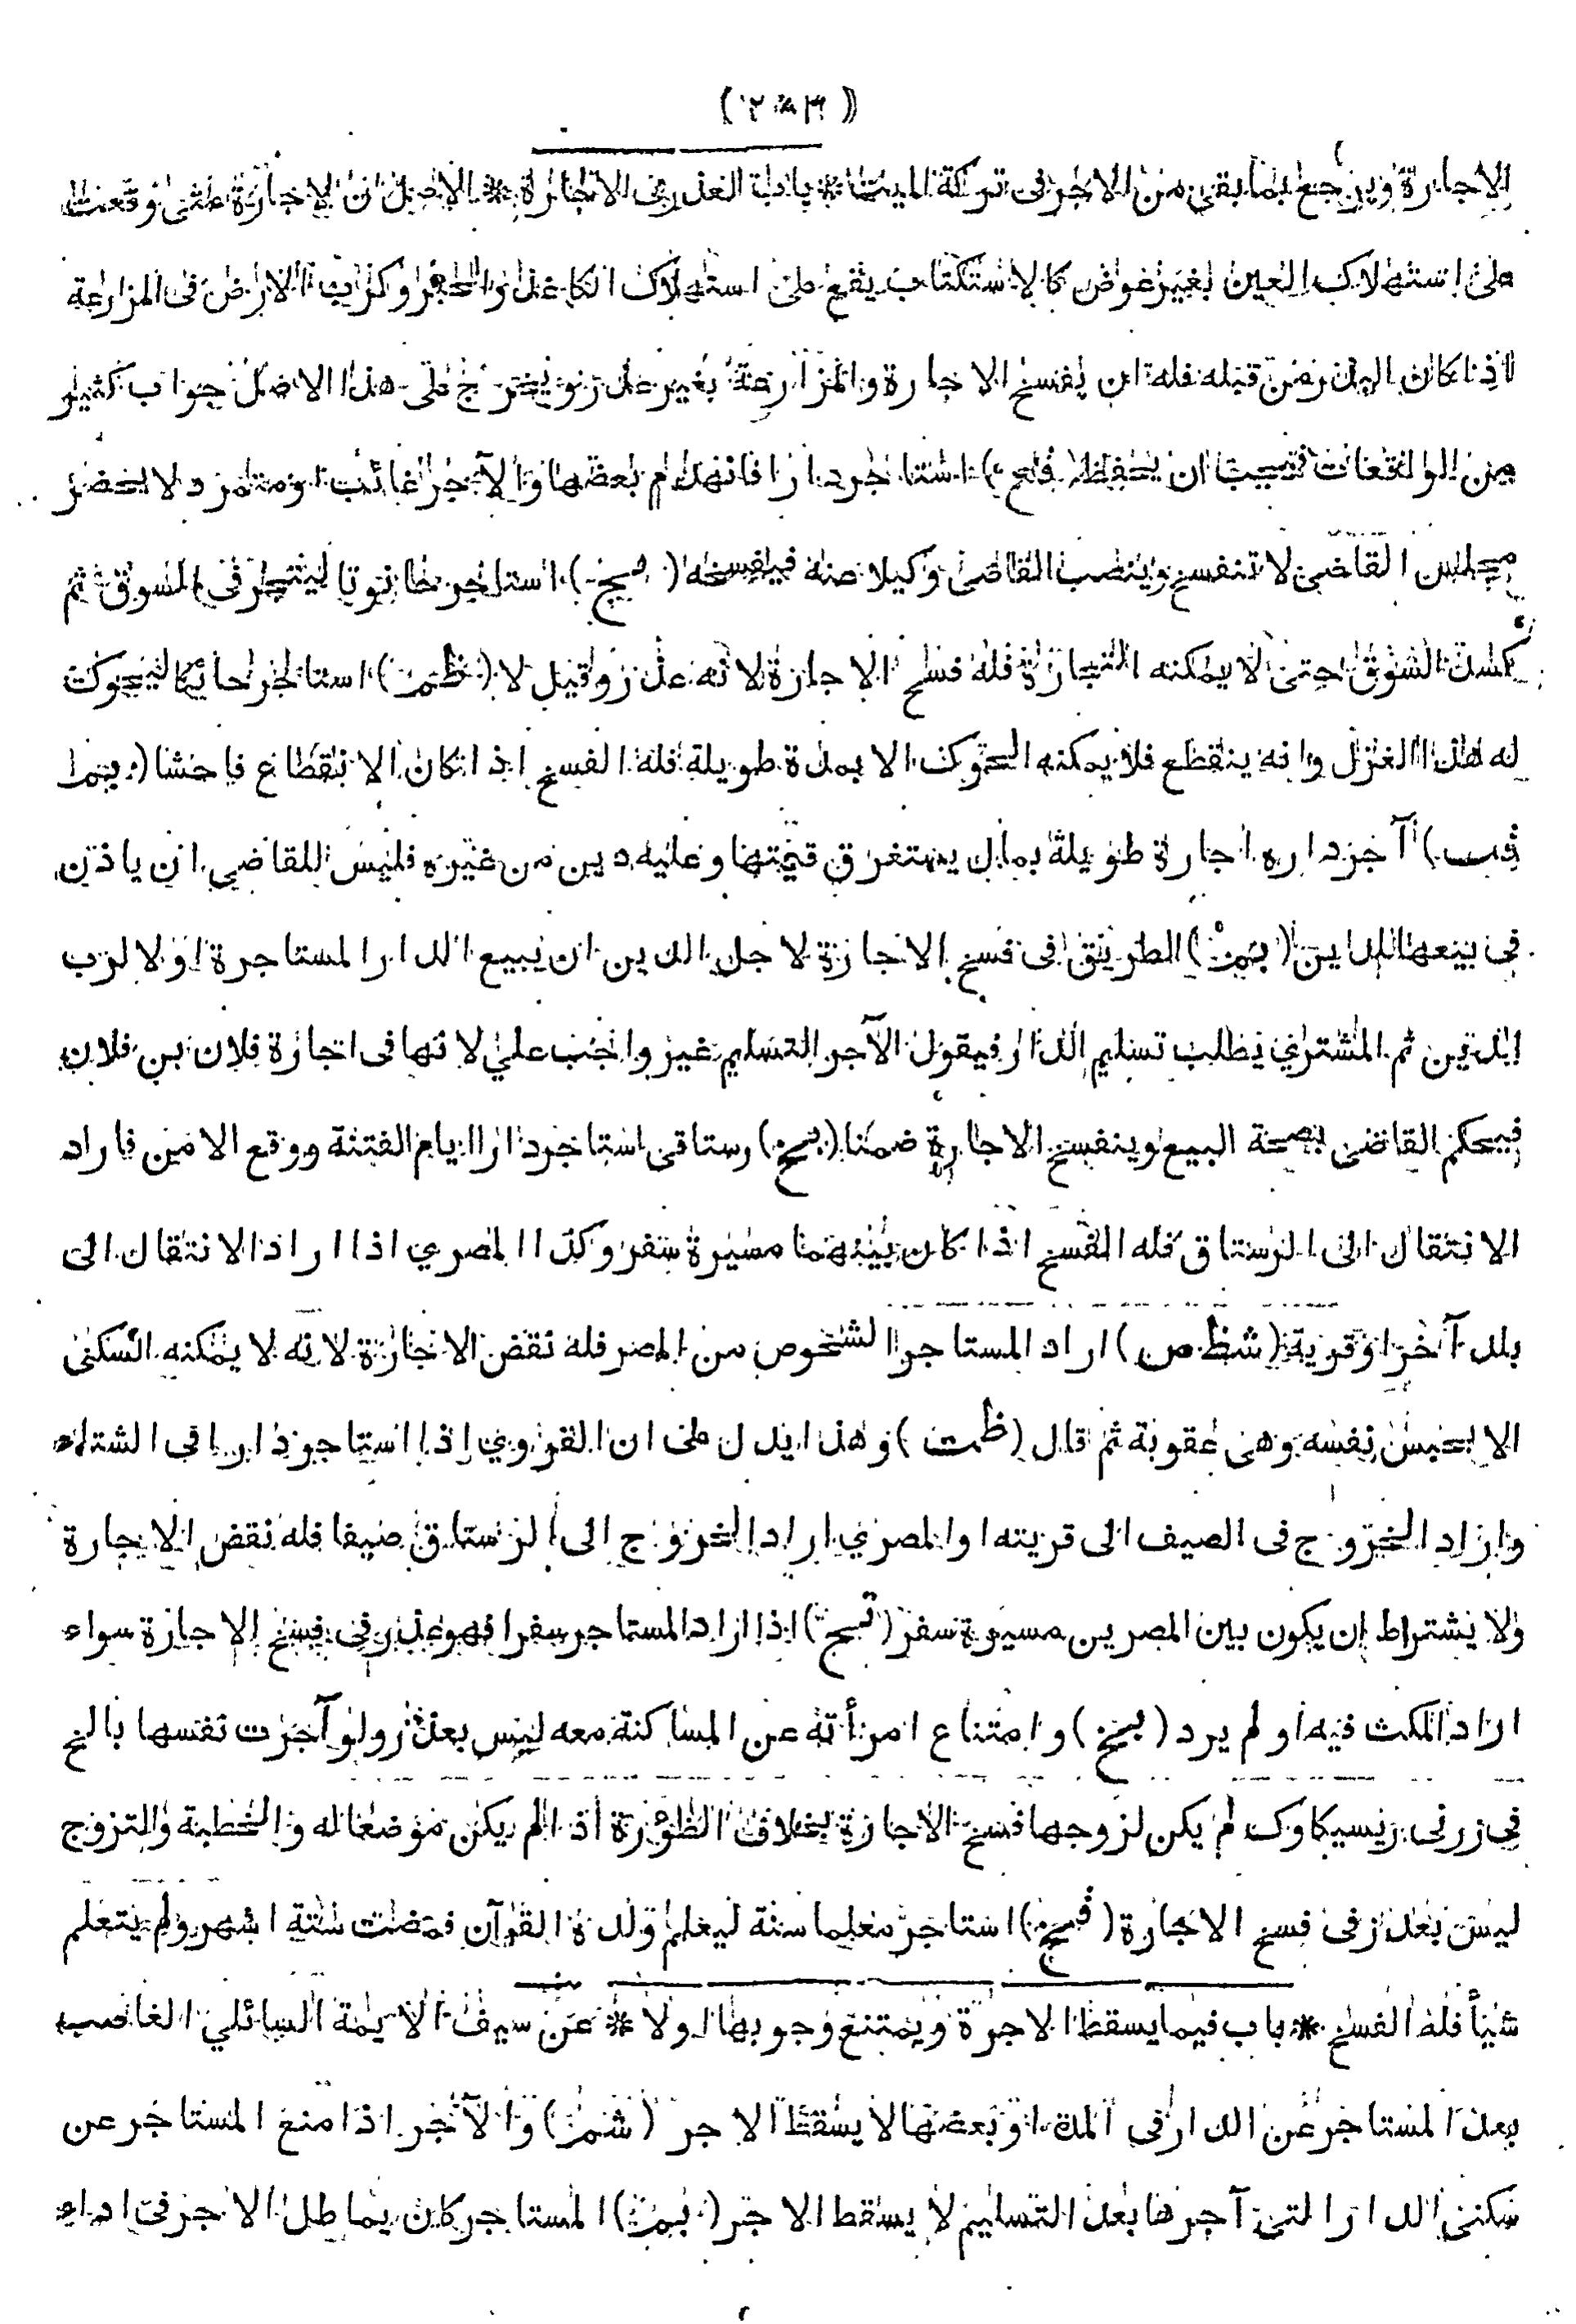 الاجارة ويرجع بما بقي من الاجر في تركة الميت * باب العذر في الاجارة * الاصل ان الاجارة متى وقعت
على استهلاك العين بغير عوض كالاستكتاب يقع على استهلاك الكاغذ والحبر وكراب الارض في المزارعة
اذا كان البذر من قبله فله ان يفسخ الاجارة والمزارعة بغير عذر ويخرج على هذا الاصل جواب كثير
من الواقعات فيجب ان يحفظ استاجر دارا فانهدم بعضها والآجر غائب او متمرد لا يحضر
مجلس القاضي لا تنفسخ وينصب القاضي وكيلا عنه فيفسخه (بخ) استاجر حانوتا ليتجر في السوق ثم
كسد السوق حتى لا يمكنه التجارة فله فسخ الاجارة لانه عذر وقيل لا (ظمت) استاجر حائكا ليحوك
له هذا الغزل وانه ينقطع فلا يمكنه الحوك الا بمدة طويلة فله الفسخ اذا كان الانقطاع فاحشا (بم
قب) آجر داره اجارة طويلة بمال يستغرق قيمتها وعليه دين من غيره فليس للقاضي ان ياذن
في بيعها للدين (بم) الطريق في فسخ الاجازة لاجل الدين ان يبيع الدار المستاجرة اولا لرب
الدين ثم المشتري يطلب تسليم الدار فيقول الآجر التسليم غير واجب علي لانها في اجارة فلان بن فلان
فيحكم القاضي بصحة البيع وينفسخ الاجارة ضمنا (بخ) رستاقي استاجر دارا ايام الفتنة ووقع الامن فاراد
الانتقال الى الرستاق فله الفسخ اذا كان بينهما مسيرة سفر وكذا المصري اذا اراد الانتقال الى
بلد آخر او قرية (شظ ص) اراد المستاجر الشخوص من المصر فله نقض الاجارة لانه لا يمكنه السكنى
الا بحبس نفسه وهي عقوبة ثم قال (ظمت) وهذا يدل على ان القروي اذا استاجر دارا في الشتاء
واراد الخروج في الصيف الى قريته او المصري اراد الخروج الى الرستاق صيفا فله نقض الاجارة
ولا يشترط ان يكون بين المصرين مسيرة سفر اذا اراد المستاجر سفرا فهو عذر في فسخ الاجارة سواء
اراد المكث فيه او لم يرد (بخ) وامتناع امرأته عن المساكنة معه ليس بعذر ولو آجرت نفسها بالخ
في لم يكن لزوجها فسخ الاجازة بخلاف الظؤرة اذا لم يكن موضعا له والخطبة والتزوج
ليس بعذر في فسخ الاجارة استاجر معلما سنة ليعلم ولده القرآن فمضت ستة اشهر ولم يتعلم
شيأ فله الفسخ * باب فيما يسقط الاجرة ويمتنع وجوبها اولا * عن سيف الايمة السائلي الغاصب
بعد المستاجر عن الدار في المدة او بعضها لا يسقط الاجر (شمز) والآجر اذا منع المستاجر عن
سكنى الدار التي آجرها بعد التسليم لا يسقط الاجر (بم) المستاجر كان يماطل الاجر في اداء